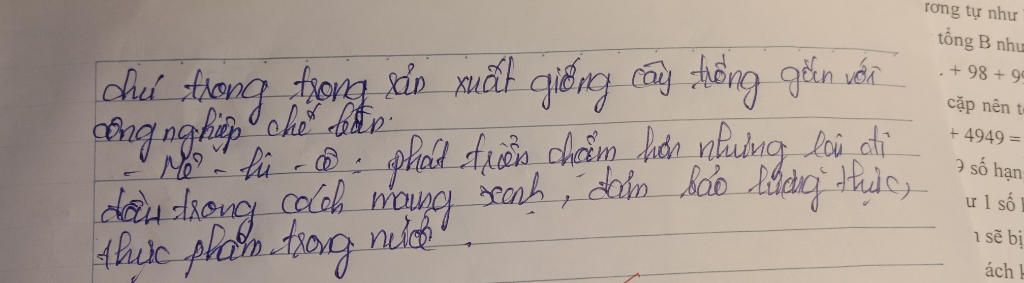 chú trọng trong sản xuất giống cây trồng gắn với
công nghiệp chế biến.
- Mê - hi - cô : phát triển chậm hơn nhưng lại đi
đầu trong cách mạng xanh, đảm bảo lương thực,
thực phẩm trong nước.
rơng tự như
tổng B như
. + 98 + 99
cặp nên t
+ 4949 =
số hạn
ư 1 số
sẽ bị
ách